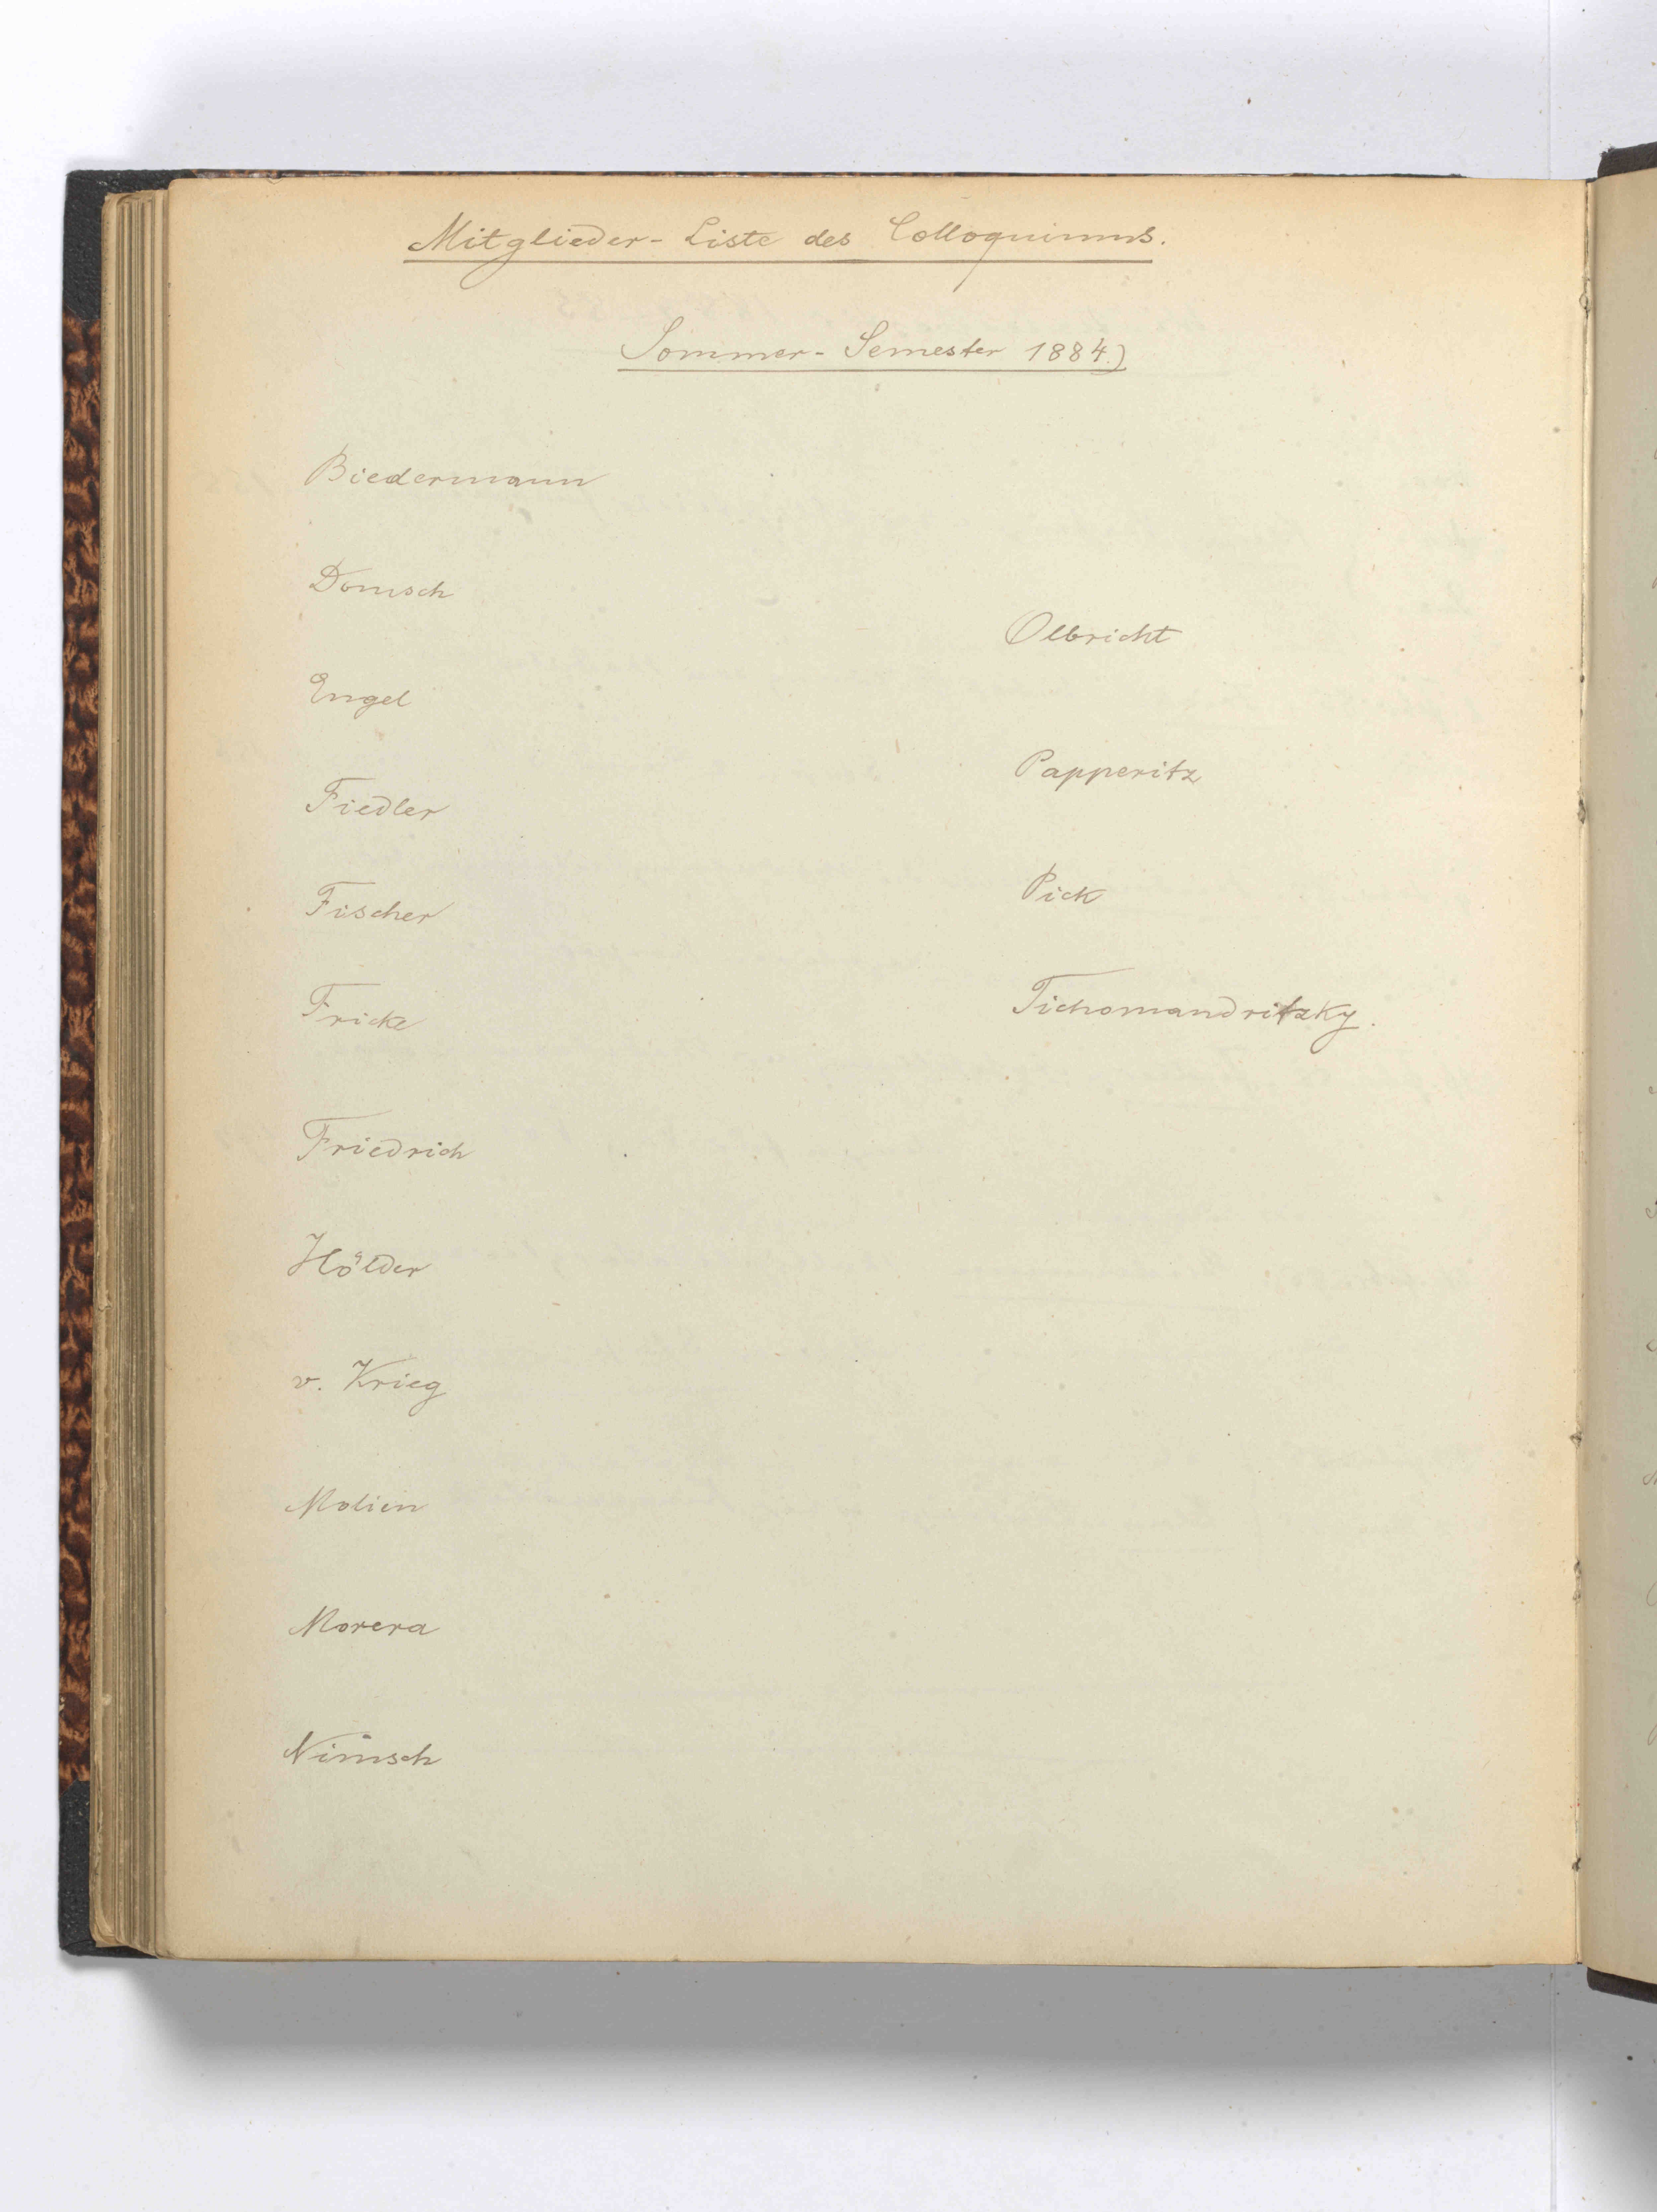 Mitglieder-Liste des Colloquiums.
Sommer-Semester 1884.)
Biedermann
Domsch
Engel
Fiedler
Fischer
Fricke
Friedrich
Hölder
v. Krieg
Molien
Morera
Nimsch
Olbricht
Papperitz
Pick
Tichomandritzky.